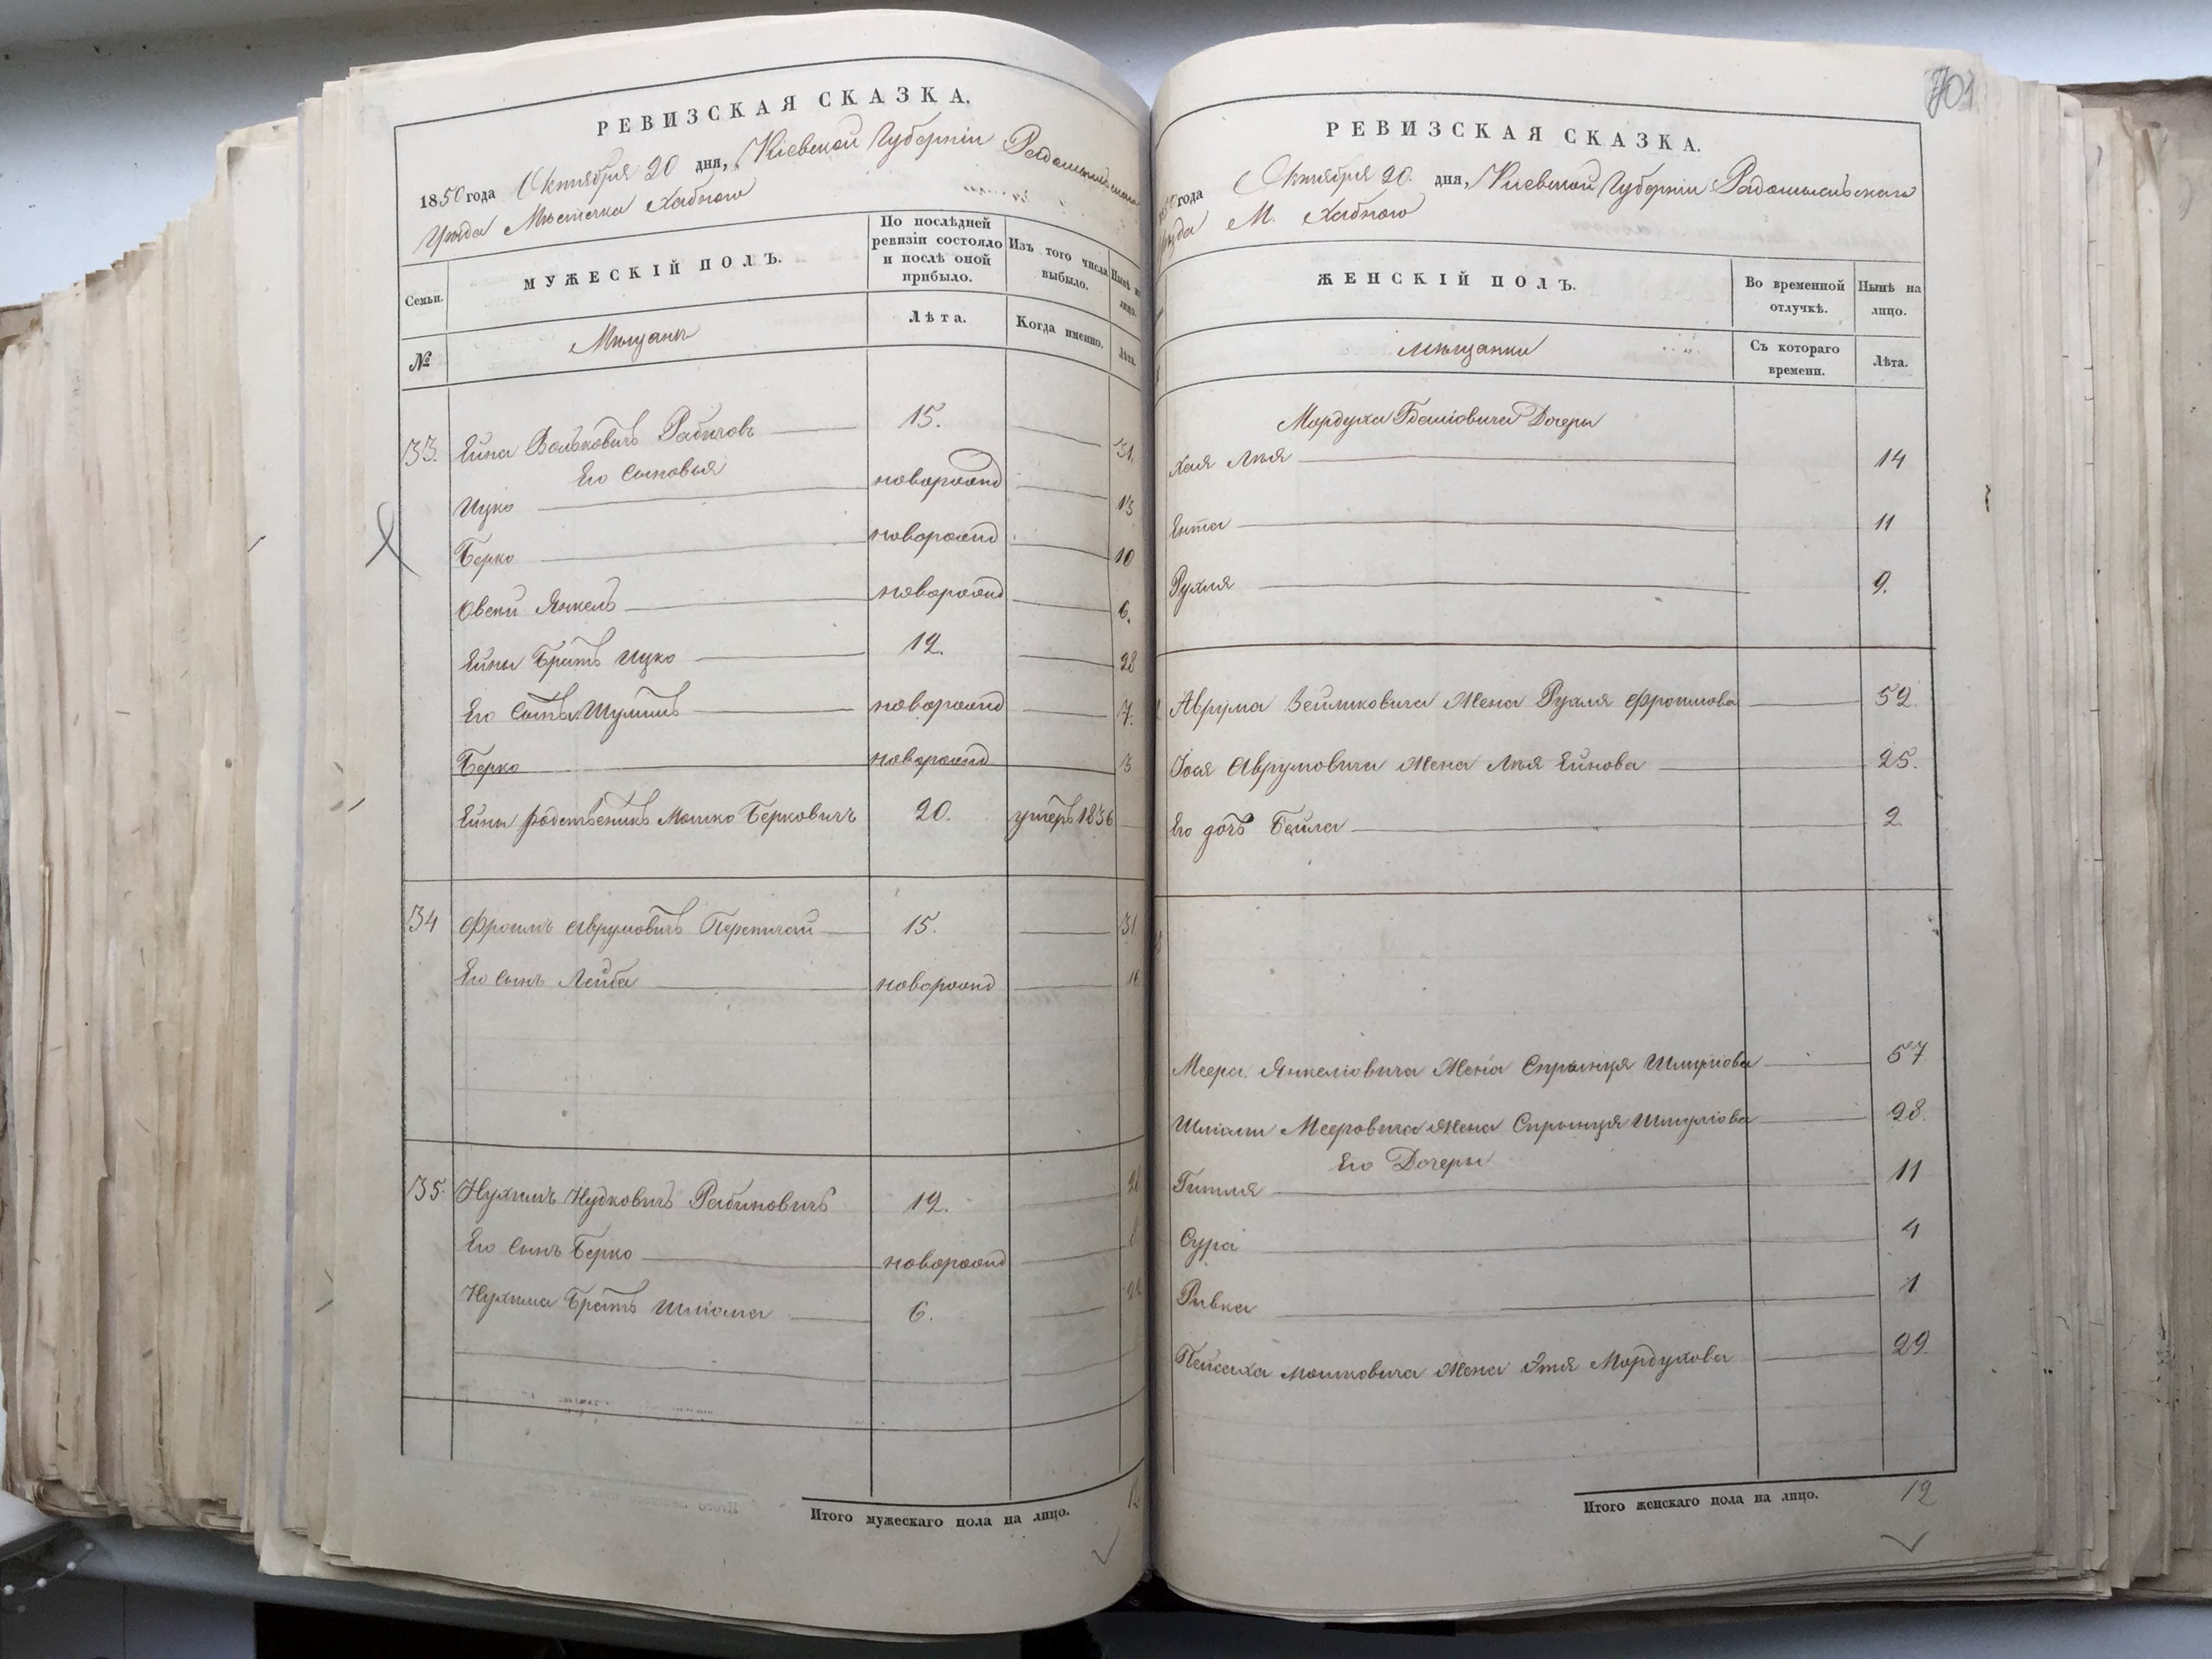 РЕВИЗСКАЯ СКАЗКА.
1850 года Октября 20 дня, Кіевской Губерніи Радомысльскаго
Уѣзда Мѣстечка Хабного
Семьи.
МУЖЕСКІЙ ПОЛЪ.
По послѣдней ревизіи состояло и послѣ оной прибыло.
Изъ того числа выбыло.
Нынѣ на лицо.
№
Мѣщанъ
Лѣта.
Когда именно.
Лѣта.
33. Ейна Вольковичъ 15. 31.
Его Сыновья
Ицко новорожд 13
Берко новорожд 10
Овсей Янкель новорожд 6.
Ейны Братъ Ицко 12. 28
Его Сынъ новорожд 7.
Берко новорожд 3
Ейны родственикъ Мошко Берковичъ 20. умеръ 1836
34 Фроимъ Аврумовичъ 15. 31.
Его Сынъ Лейба новорожд
35. Нухимъ Нудковичъ Рабиновичъ 12.
Его Сынъ Берко новорожд
Нухима Братъ Шліома 6.
Итого мужескаго пола на лицо.
701
РЕВИЗСКАЯ СКАЗКА.
1850 года Октября 20. дня, Кіевской Губерніи Радомысльскаго
Уѣзда М. Хабного
ЖЕНСКІЙ ПОЛЪ.
Во временной отлучкѣ.
Нынѣ на лицо.
Мѣщанки
Съ котораго времени.
Лѣта.
Мордуха Дочеры
Хая Лѣя 14
Ента 11
Рухля 9.
Аврума Зельмковича Жена Рухля Фроимова 52.
Іося Аврумовича Жена Лѣя Ейнова 25.
Его дочь Бейла 2.
Меера Янкеліовича Жена Спрынця Шмуліова 57
Шліоми Мееровича Жена Спрынця Шмуліова 28.
Его Дочеры
Гитля 11
Сура 4
Ривка 1
Пейсаха Мошковича Жена Этя Мордухова 29.
Итого женскаго пола на лицо. 12